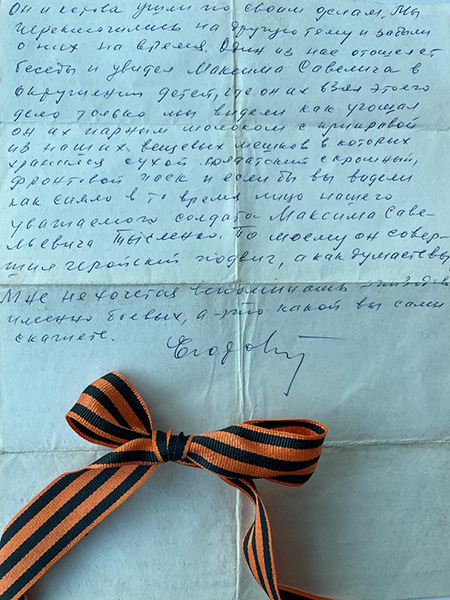 Он и корова ушли по своим делам. Мы
переключились на другую тему и забыли
о них на время. Один из нас отошел от
беседы и увидел Максима Савелича в
окружении детей, где он их взял это его
дело только мы видели как угощал
он их парным молоком с приправой
из наших вещевых мешков в которых
хранился сухой солдатский скромный,
фронтовой паек и если бы вы видели
как сияло в то время лицо нашего
уважаемого солдата Максима Саве-
льевича Тысленко. По моему он совер-
шил геройский подвиг, а как думаете вы
Мне не хочется вспоминать эпизодов
именно боевых, а это какой вы сами
скажете.